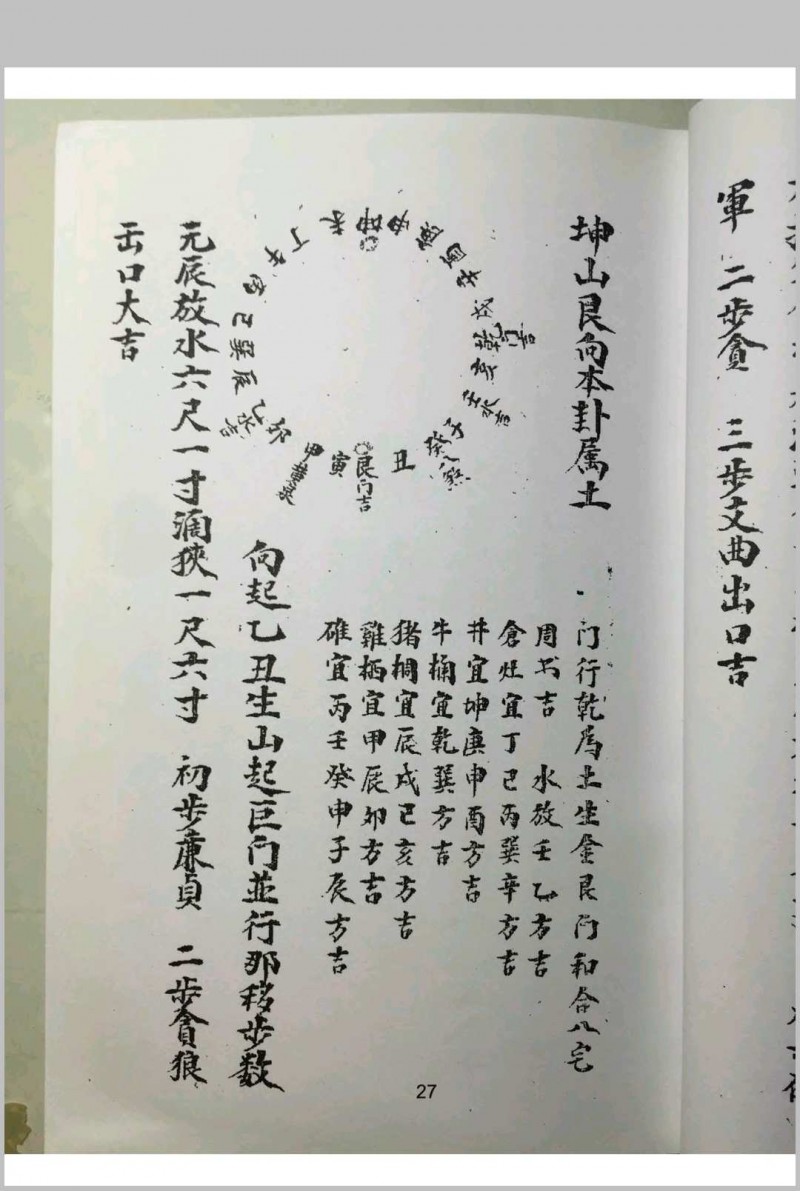 軍 二步貪 三步文曲出口吉
坤山艮向本卦属土
门行乾為土生金艮门和合八宅
周书吉 水放壬乙方吉
倉灶宜丁己丙巽辛方吉
井宜坤庚申酉方吉
牛欄宜乾巽方吉
猪欄宜辰戌己亥方吉
雞栖宜甲辰卯方吉
碓宜丙壬癸申子辰方吉
丁
未
坤
申
庚
酉
辛
戌
乾门吉
亥
壬水吉
子
癸
丑
艮门吉
寅
甲
卯
乙水吉
辰
巽
己
丙
午
向起乙丑生山起巨门並行那移步数
元辰放水六尺一寸濶狹一尺六寸 初步廉貞 二步貪狼
出口大吉
27